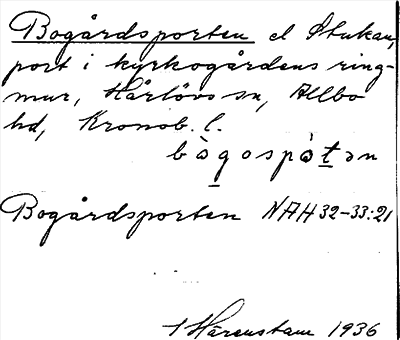 Bogårdsporten el Stukan,
port i kyrkogårdens ring-
mur, Hårlövs sn, Allbo
hd, Kronob. l.
bògospòtən
Bogårdsporten NAH 32-33:21
Härenstam 1936